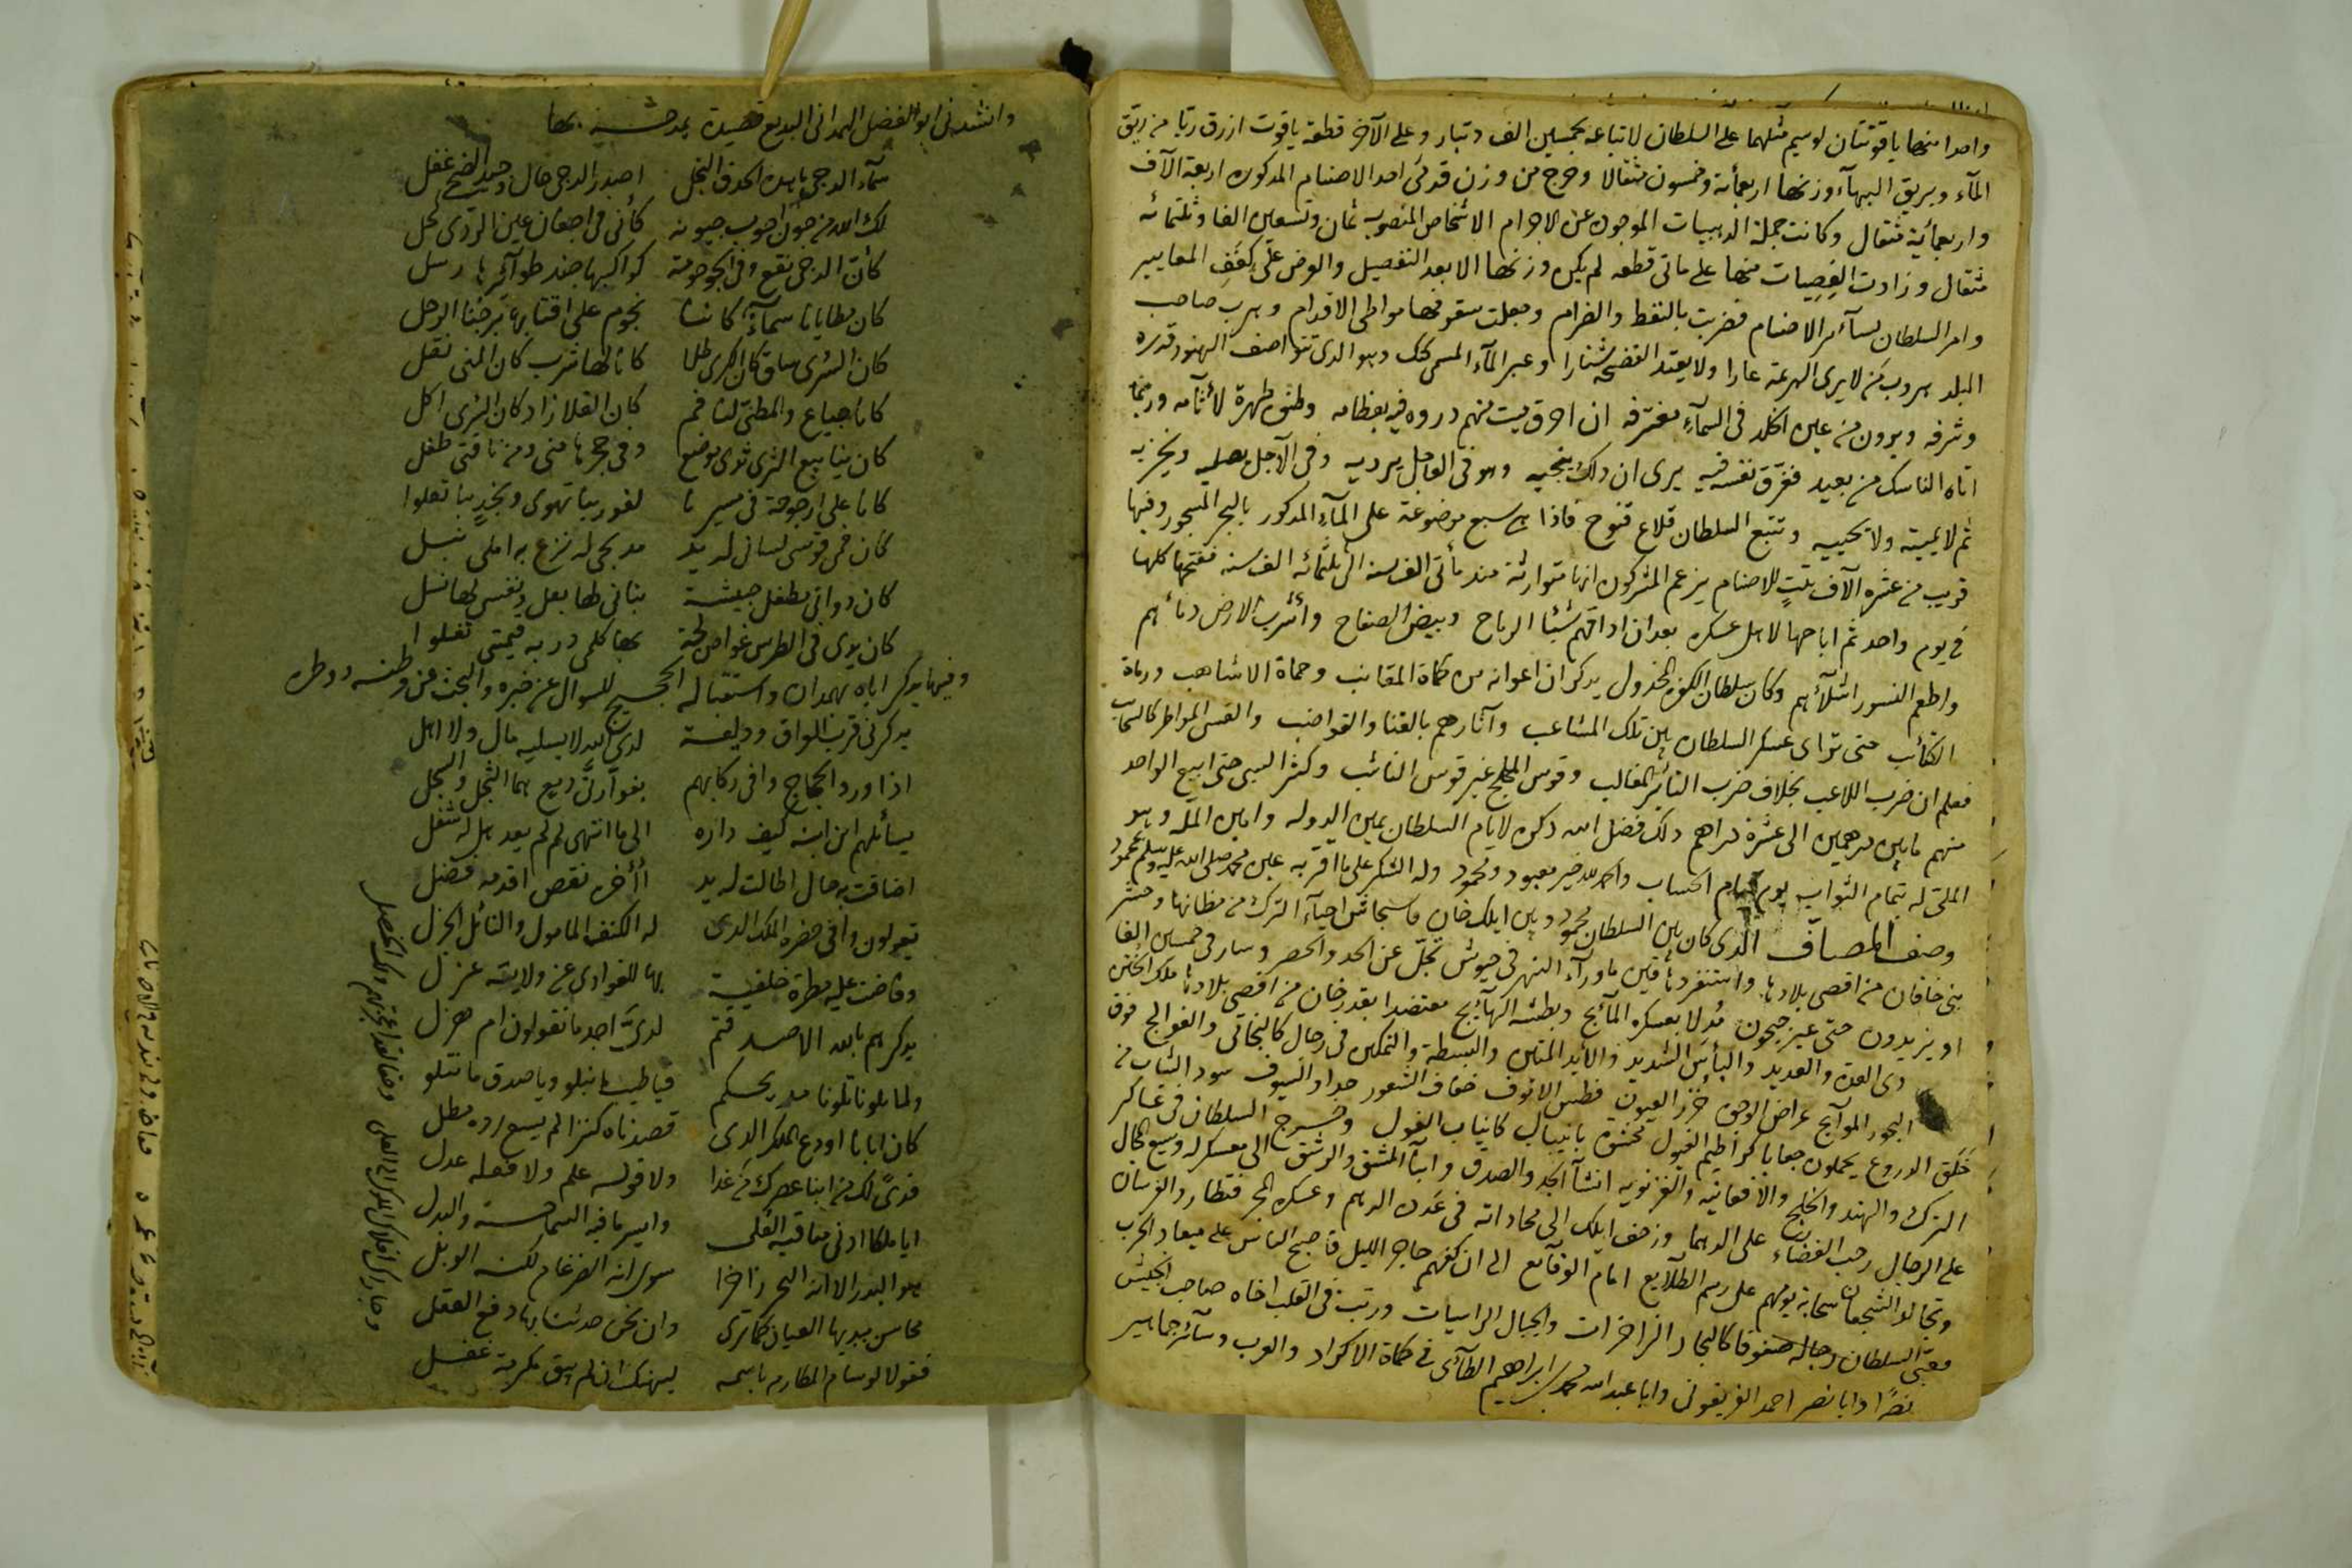 واحدا منهما ياقوتتان لو سيم مثلهما على السلطان لابتاعه بخمسين الف دينار وعلى الآخر قطعة ياقوت ازرق ريّا من ريق
المآء وبريق البهآء وزنها اربعمائة وخمسون مثقالا وخرج من وزن قدمى احد الاصنام المذكوره اربعة آلاف
واربعمائة مثقال وكانت جملة الذهبيات الموجوده عن الاجرام الاشخاص المنصوب ثمان وتسعين الفا وثلثمائه
مثقال وزادت الفضيات منها على مأتى قطعه لم يكن وزنها الا بعد التفصيل والعرض على كفف المعايير
وامر السلطان بسآئر الاصنام فضربت بالنفط والضرام وجعلت سقوفها مواطى الاقدام وهرب صاحب
البلد هروب من لا يرى الهزيمة عارا ولا يعتد الفضيحة شنارا وعبر المآء المسمى كنك وهو الذى تتواصف الهنود قدره
وشرفه ويرون من عين الخلد فى السمآء مغترفه ان احرق ميت منهم ذروه فيه بعظامه وظنوه طهرة لآثامه وربما
اتاه الناسك من بعيد فغرّق نفسه فيه يرى ان ذلك ينجيه وهو فى العاجل يرديه وفى الآجل يصليه ويخزيه
ثم لا يميته ولا يحييه وتتبع السلطان قلاع قنوج فاذا هى سبع موضوعة على المآء المذكور بالبحر المسجور وفيها
قريب من عشره آلاف بيت للاصنام يزعم المشركون انها متوارثة منذ مأتى الف سنة الى ثلثمائة الف سنه ففتحها كلها
فى يوم واحد ثم اباحها لاهل عسكره بعد ان اذاقهم شبا الرماح وبيض الصفاح واشرب الارض دمائهم
واطعم النسور اشلآئهم وكان سلطان الكفره المخذول يذكر ان اعوانه من كماة المقانب وحماة الاشاهب ورماة
الكتائب حتى ترآى عسكر السلطان بين تلك المشاعب وآثارهم بالقنا والقواضب والقسى المواطر كالسحائب
فعلم ان ضرب اللاعب بخلاف ضرب الثائر المغالب وقوس الحلج غير قوس النائب وكثر السبى حتى ابيع الواحد
منهم ما بين درهمين الى عشرة دراهم ذلك فضل الله ذكره لايام السلطان يمين الدوله وامين المله وهو
الملقى له بتمام الثواب يوم قيام الحساب والحمد لله خير معبود ومحمود وله الشكر على ما اقر به عين محمد صلى الله عليه وسلم بمحمود
وصف المصاف الذى كان بين السلطان محمود وبين ايلك خان فاستجاش احيآء الترك من مظانها وحشر
بنى خاقان من اقصى بلادها واستنفر دهاقين ماورآء النهر فى جيوش تجلّ عن الحد والحصر وسار فى خمسين الفا
او يزيدون حتى عبر جيحون مُدِلا بعسكره المآئج وبطشه الهآئج معتضدا بقدرخان من اقصى بلادها ملك الختن
ذى العدة والعديد والبأس الشديد والأيد المتين والبسطة والتمكين فى رجال كالبخاتى والفوالج فوق
البحور الموآئج عراض الوجوه خزر العيون فطس الانوف خفاف الشعور حداد السيوف سود الثياب من
حَلَق الدروع يحملون جعابا كخراطيم الفيول محشوة بانياب كانياب الغول وخرج السلطان فى عساكر
الترك والهند والخلج والافغانيه والغزنويه انشآء الجد والصدق وابنآء المشق والرشق الى معسكر له وسيع المجال
على الرجال رحب الفضاء على الدهمآء وزحف ايلك الى محاذاته فى عدده الدهم وعسكره المجر فتطارد الفرسان
وتجالد الشجعان سحابة يومهم على رسم الطلايع امام الوقائع الى ان كفهم حاجز الليل فاصبح الناس على ميعاد الحرب
فعبّى السلطان رجاله صفوفا كالبحار الزاخرات والجبال الراسيات ورتب فى القلب اخاه صاحب الجيش
نصرًا وابا نصر احمد الفريغونى وابا عبد الله محمد بن ابراهيم الطآئى فى كماة الاكراد والعرب وسآئر جماهير
وانشدنى ابو الفضل الهمدانى البديع قصيدة يمدحه بها
سمآء الدجى ما هذه الحدق النجل اصدر الدجى حال وجيد الضحى عطل
لك الله من جون اجوب جيوبه كأنى فى اجفان عين الردى كحل
كأن الدجى نقع وفى الجو حومة كواكبها جند طوآئرها رسل
كان مطايانا سمآء كاننا نجوم على اقتابها برجنا الرحل
كان السرى ساق كان الكرى طلا كانا لها شرب كان المنى نقل
كانا جياع والمطىّ لنا فم كان الفلا زاد كان السرى اكل
كان ينابيع الثرى ثدى مرضع وفى حجرها منى ومن ناقتى طفل
كانا على ارجوحة فى مسيرنا لغور بنا تهوى ونجد بنا تعلوا
كان فمى قوس لسانى له يد مديحى له نزع به املى نبل
كان دواتى مطفل حبشية بنانى لها بعل ونقسى لها نسل
كان يدى فى الطرس غواص لجة بها كلمى در به قيمتى تغلوا
وفيها يذكر اباه بهمدان واستقباله الحجيج للسوال عن خبره والبحث عن وطنه ووطره
يذكرنى قرب العراق وديعة لدى الله لا يسليه مال ولا اهل
اذا ورد الحجاج وافى ركابهم
يسائلهم اين ابنه كيف داره الى ما انتهى لم لم يعد هل له شغل
اضاقت به حال اطالت له يد أأخره نقص اقدمه فضل
يقولون وافى حضرة الملك الذى له الكنف المامول والنائل الجزل
وفاضت عليه مطرة خلفية بها للغوادى عن ولايته عزل
يذكرهم بالله الا صدقتم لدىّ اجد ما تقولون ام هزل
ولما بلونا تلونا مديحكم فيا طيب ما نبلو ويا صدق ما نتلو
قصدناه كنزا لم يسع رده مطل
فدىً لك من ابناء عصرك من غدا ولا قوله علم ولا فعله عدل
ايا ملكا ادنى مناقبه العلى وايسر ما فيه السماحة والبذل
هو البدر الا انه البحر زاخرا سوى انه الضرغام لكنه الوبل
محاسن يبديها العيان كما ترى وان نحن حدثنا بها دفع العقل
فقولا لوسام المكارم باسمه ليهنك ان لم يبق مكرمة غفل